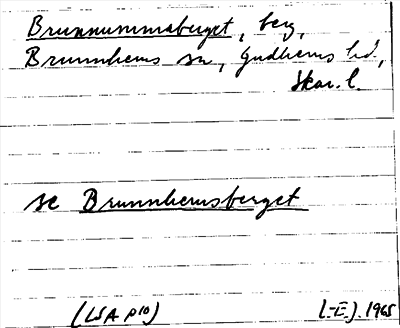 Brunnummaberget, berg,
Brunnhems sn, Gudhems hd,
Skar. l.
se Brunnhemsberget
(LSA P10) 1965